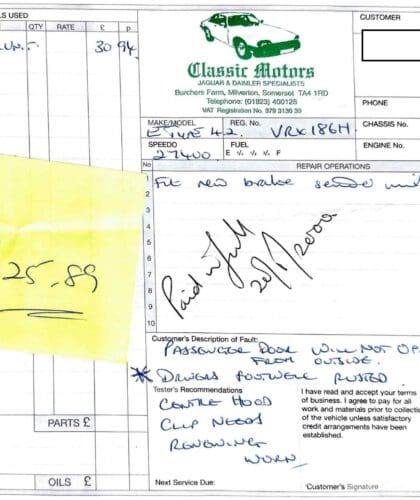 LS USED
QTY
RATE
£
p
30
94
25.89
PARTS £
OILS £
Classic Motors
JAGUAR & DAIMLER SPECIALISTS
Burchem Farm, Milverton, Somerset TA4 1RD
Telephone: (01823) 400128
VAT Registration No. 379 3136 39
CUSTOMER
PHONE
MAKE/MODEL
E TYPE 4.2
REG. No.
VRX 186H
CHASSIS No.
SPEEDO
27400
FUEL
E ¼ ½ ¾ F
ENGINE No.
No
REPAIR OPERATIONS
1 Fit new brake
2
3
4
5
6
7
8
9
10
Paid in full
20/1/2000
Customer's Description of Fault:
PASSENGER DOOR WILL NOT OP
FROM OUTSIDE.
* DRIVERS FOOTWELL RUSTED
Tester's Recommendations
CENTRE HOOD
CLIP NEEDS
RENEWING
WORN
I have read and accept your terms
of business. I agree to pay for all
work and materials prior to collectio
of the vehicle unless satisfactory
credit arrangements have been
established.
Next Service Due:
Customer's Signature